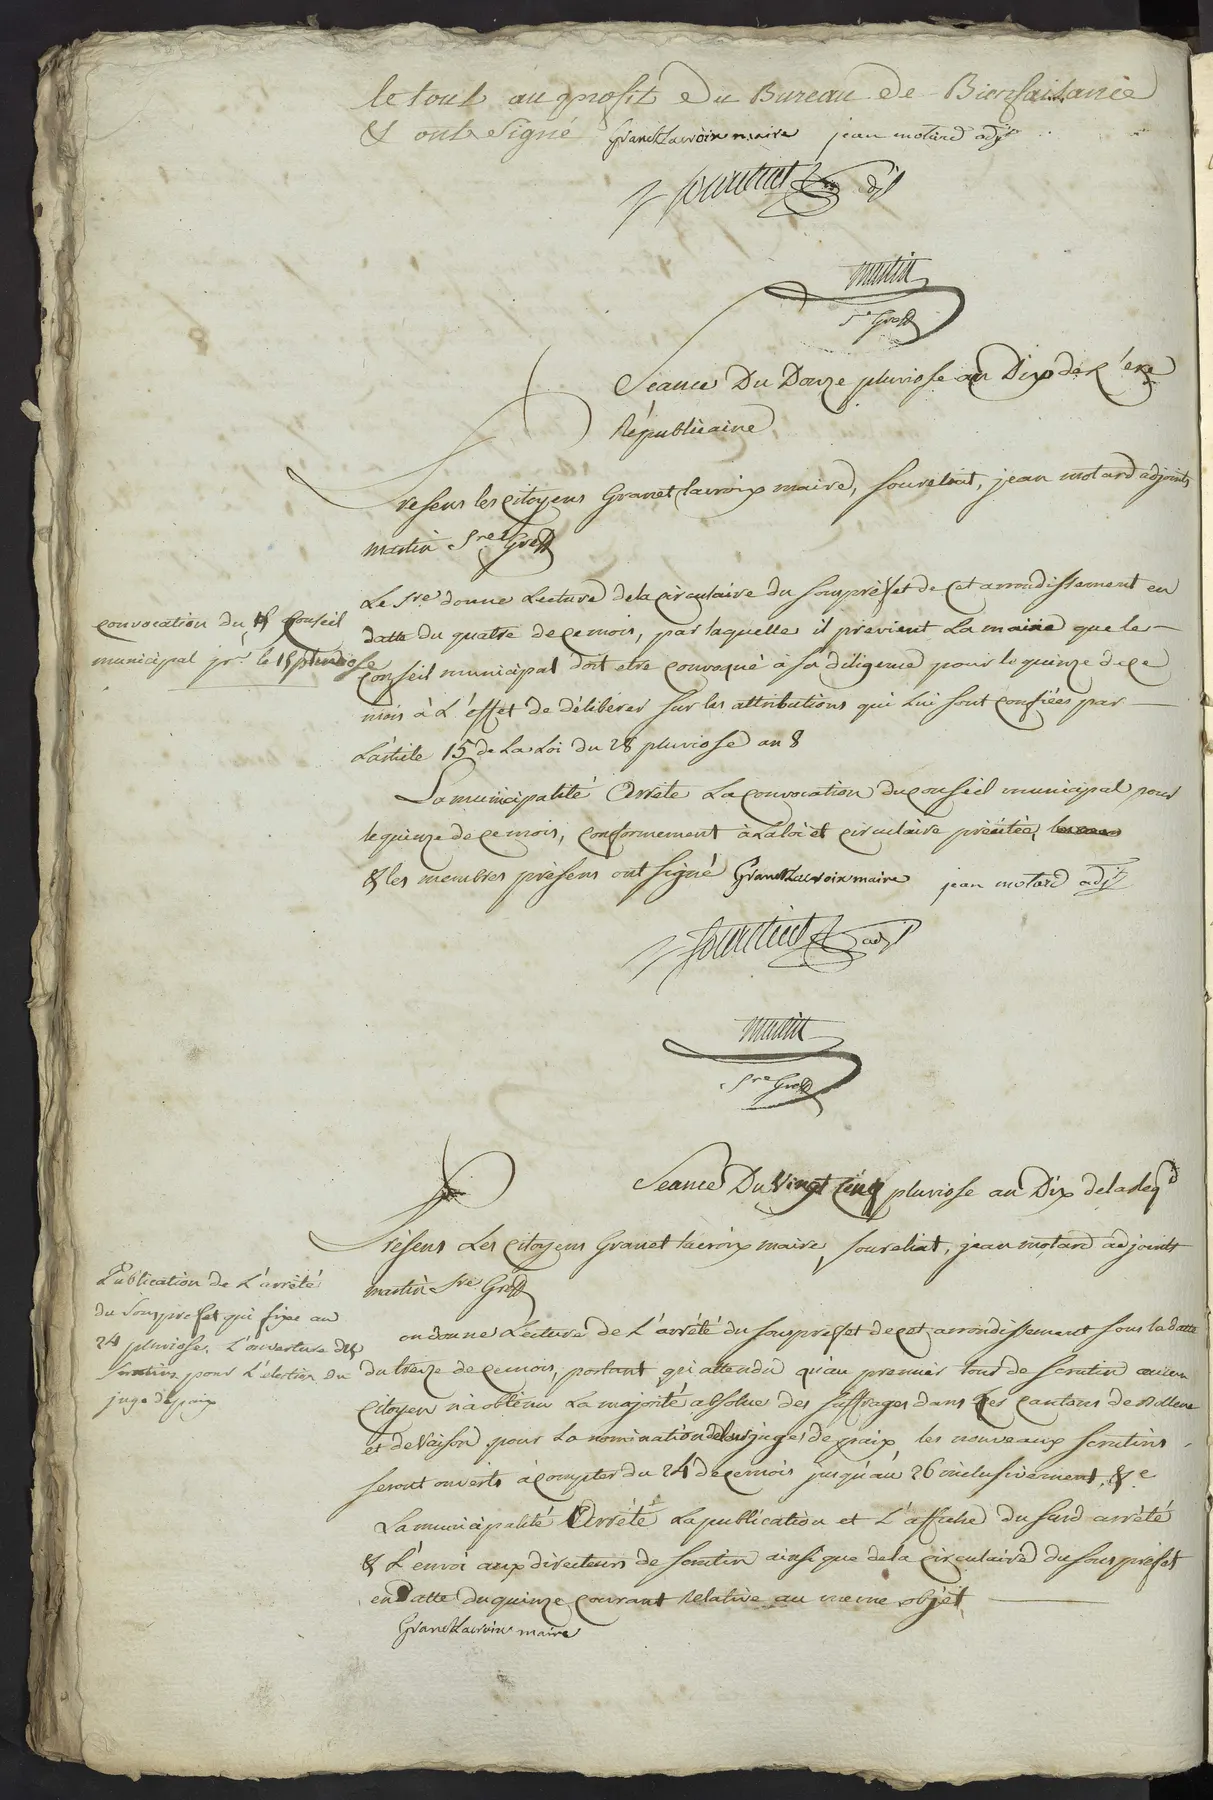 le tout au profit du Bureau de Bienfaisance
& ont signé Granet Lacroix maire jean motard adjt
Soureliat adjt
martin
sre Greff
Séance Du Douze pluviose an Dix de L'ere
Républicaine
Presens les Citoyens Granet lacroix maire, Soureliat, jean motard adjoints
martin Sre Greff
convocation du Conseil
municipal pr. le 15 pluviose
Le Sre donne Lecture de la circulaire du Sousprèfet de Cet arrondissement en
datte du quatre de ce mois, par laquelle il previent La mairie que le
Conseil municipal doit etre convoqué à sa diligence pour le quinze de ce
mois à L'effet de délibérer sur les attributions qui Lui sont confiées par
L'article 15 de La Loi du 28 pluviose an 8
La municipalité Arrete La Convocation du Conseil municipal pour
le quinze de ce mois, conformement à La loi et circulaire précitée,
& les membres présens ont signé Granet Lacroix maire jean motard adjt
Soureliat adjt
martin
Sre Greff
Séance Du Vingt Cinq pluviose an Dix de la Rep
Présens Les Citoyens Granet lacroix maire, Soureliat, jean motard adjoints
martin Sre Greff
Publication de L'arrêté
du Sousprefet qui fixe au
24 pluviose, L'ouverture du
Scrutin pour L'élection du
juge de paix
on donne Lecture de L'arrêté du sousprèfet de cet arrondissement sous la datte
du treize de ce mois, portant qu'attendu qu'au premier tour de scrutin aucun
Citoyen n'a obtenu La majorité absolue des suffrages dans Les cantons de Bollene
et de Vaison pour La nomination de leurs juges de paix, les nouveaux scrutins
seront ouverts à compter du 24 de ce mois jusqu'au 26 inclusivement, &c
La municipalité Arrête La publication et L'affiche du susd arrêté
& L'envoi aux directeurs de scrutin ainsi que de la circulaire du sous prefet
en Datte du quinze courant Relative au meme objet
Granet Lacroix maire